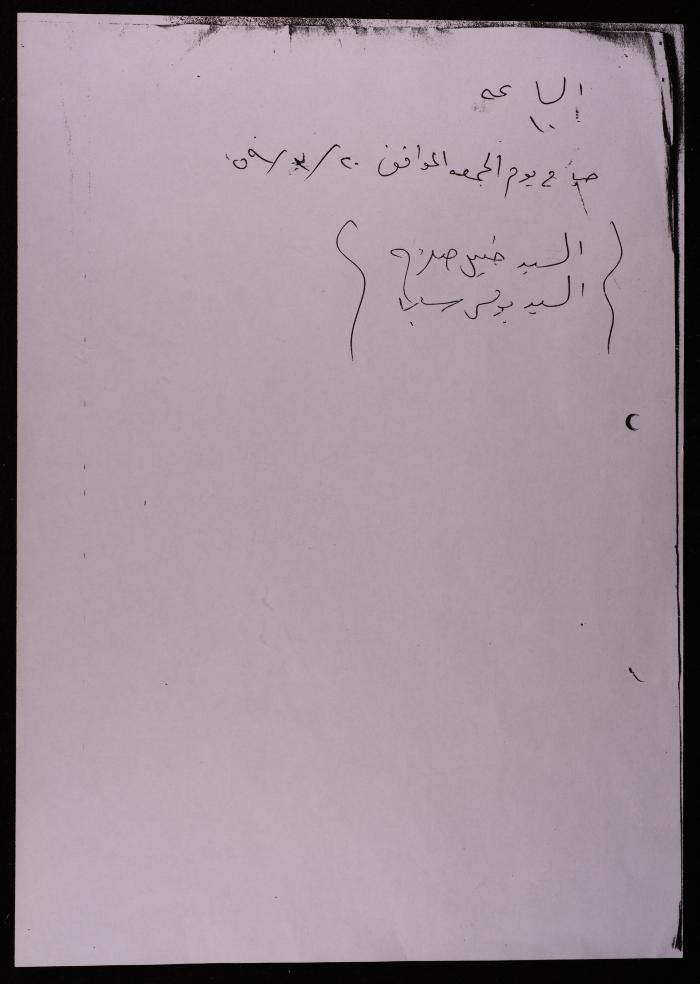 الساعه
١٠
صباً في يوم الجمعه الموافق ٢٠/ /٥٩
السيد خليل
السيد يونس سابا